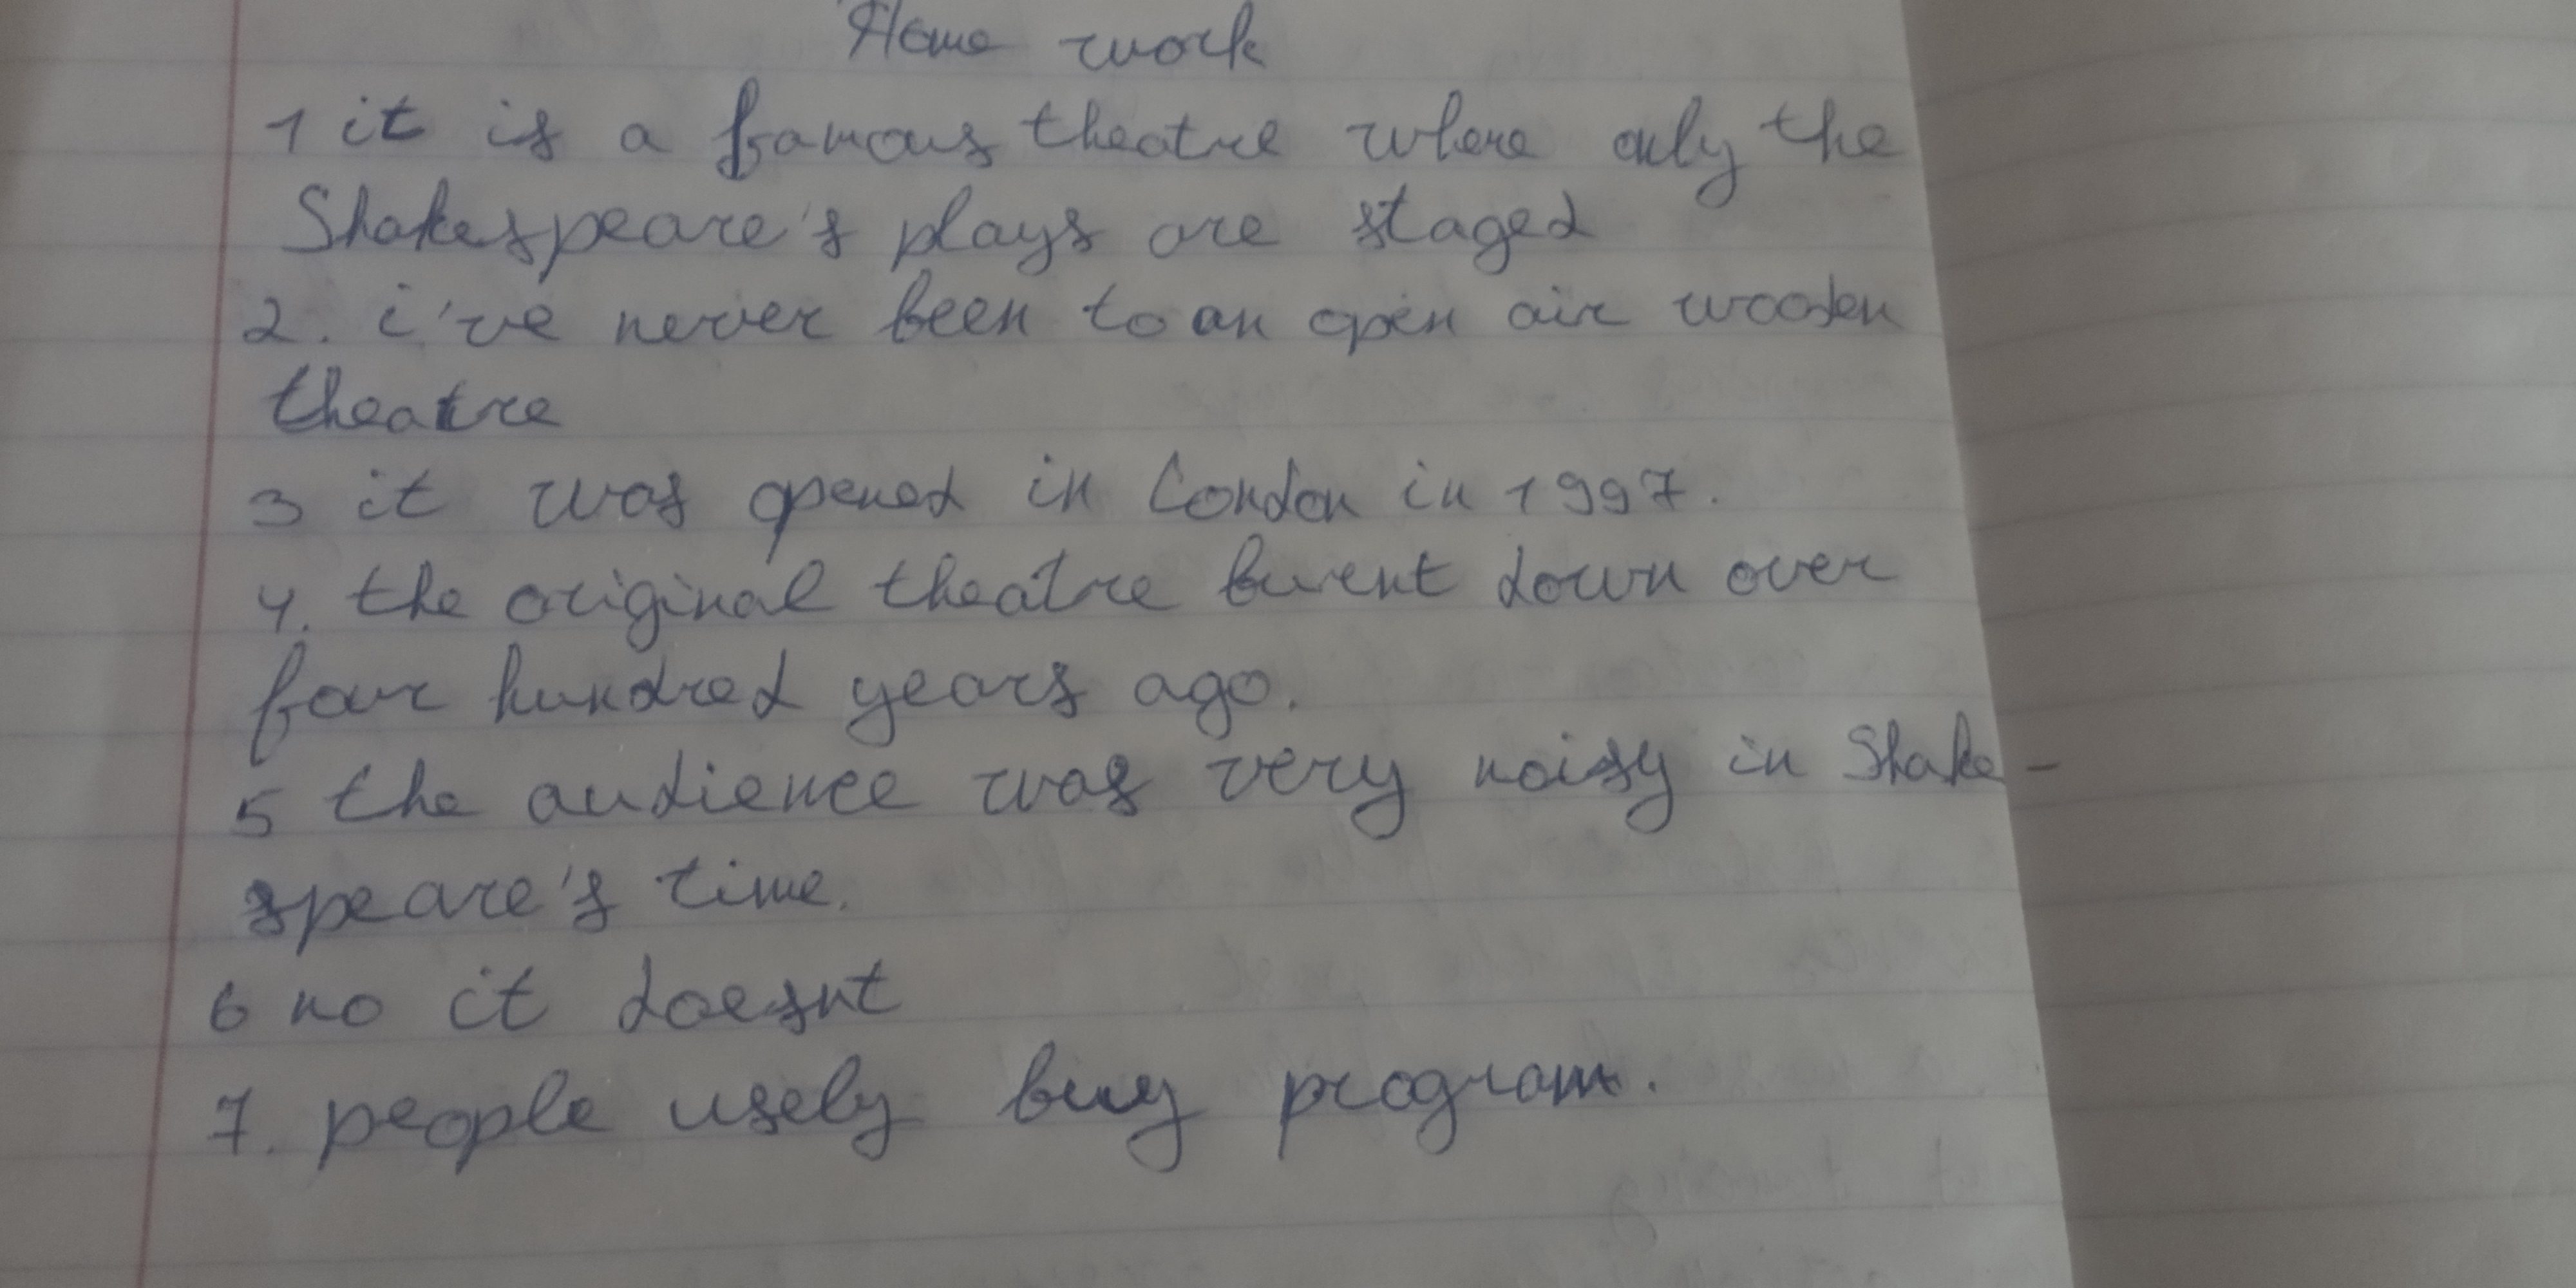 Home work
1 it is a famous theatre where only the
Shakespeare's plays are staged
2. i've never been to an open air wooden
theatre
3 it was opened in London in 1997.
4. the original theatre burnt down over
four hundred years ago.
5 the audience was very noisy in Shake-
speare's time.
6 no it doesnt
7. people usely buy program.